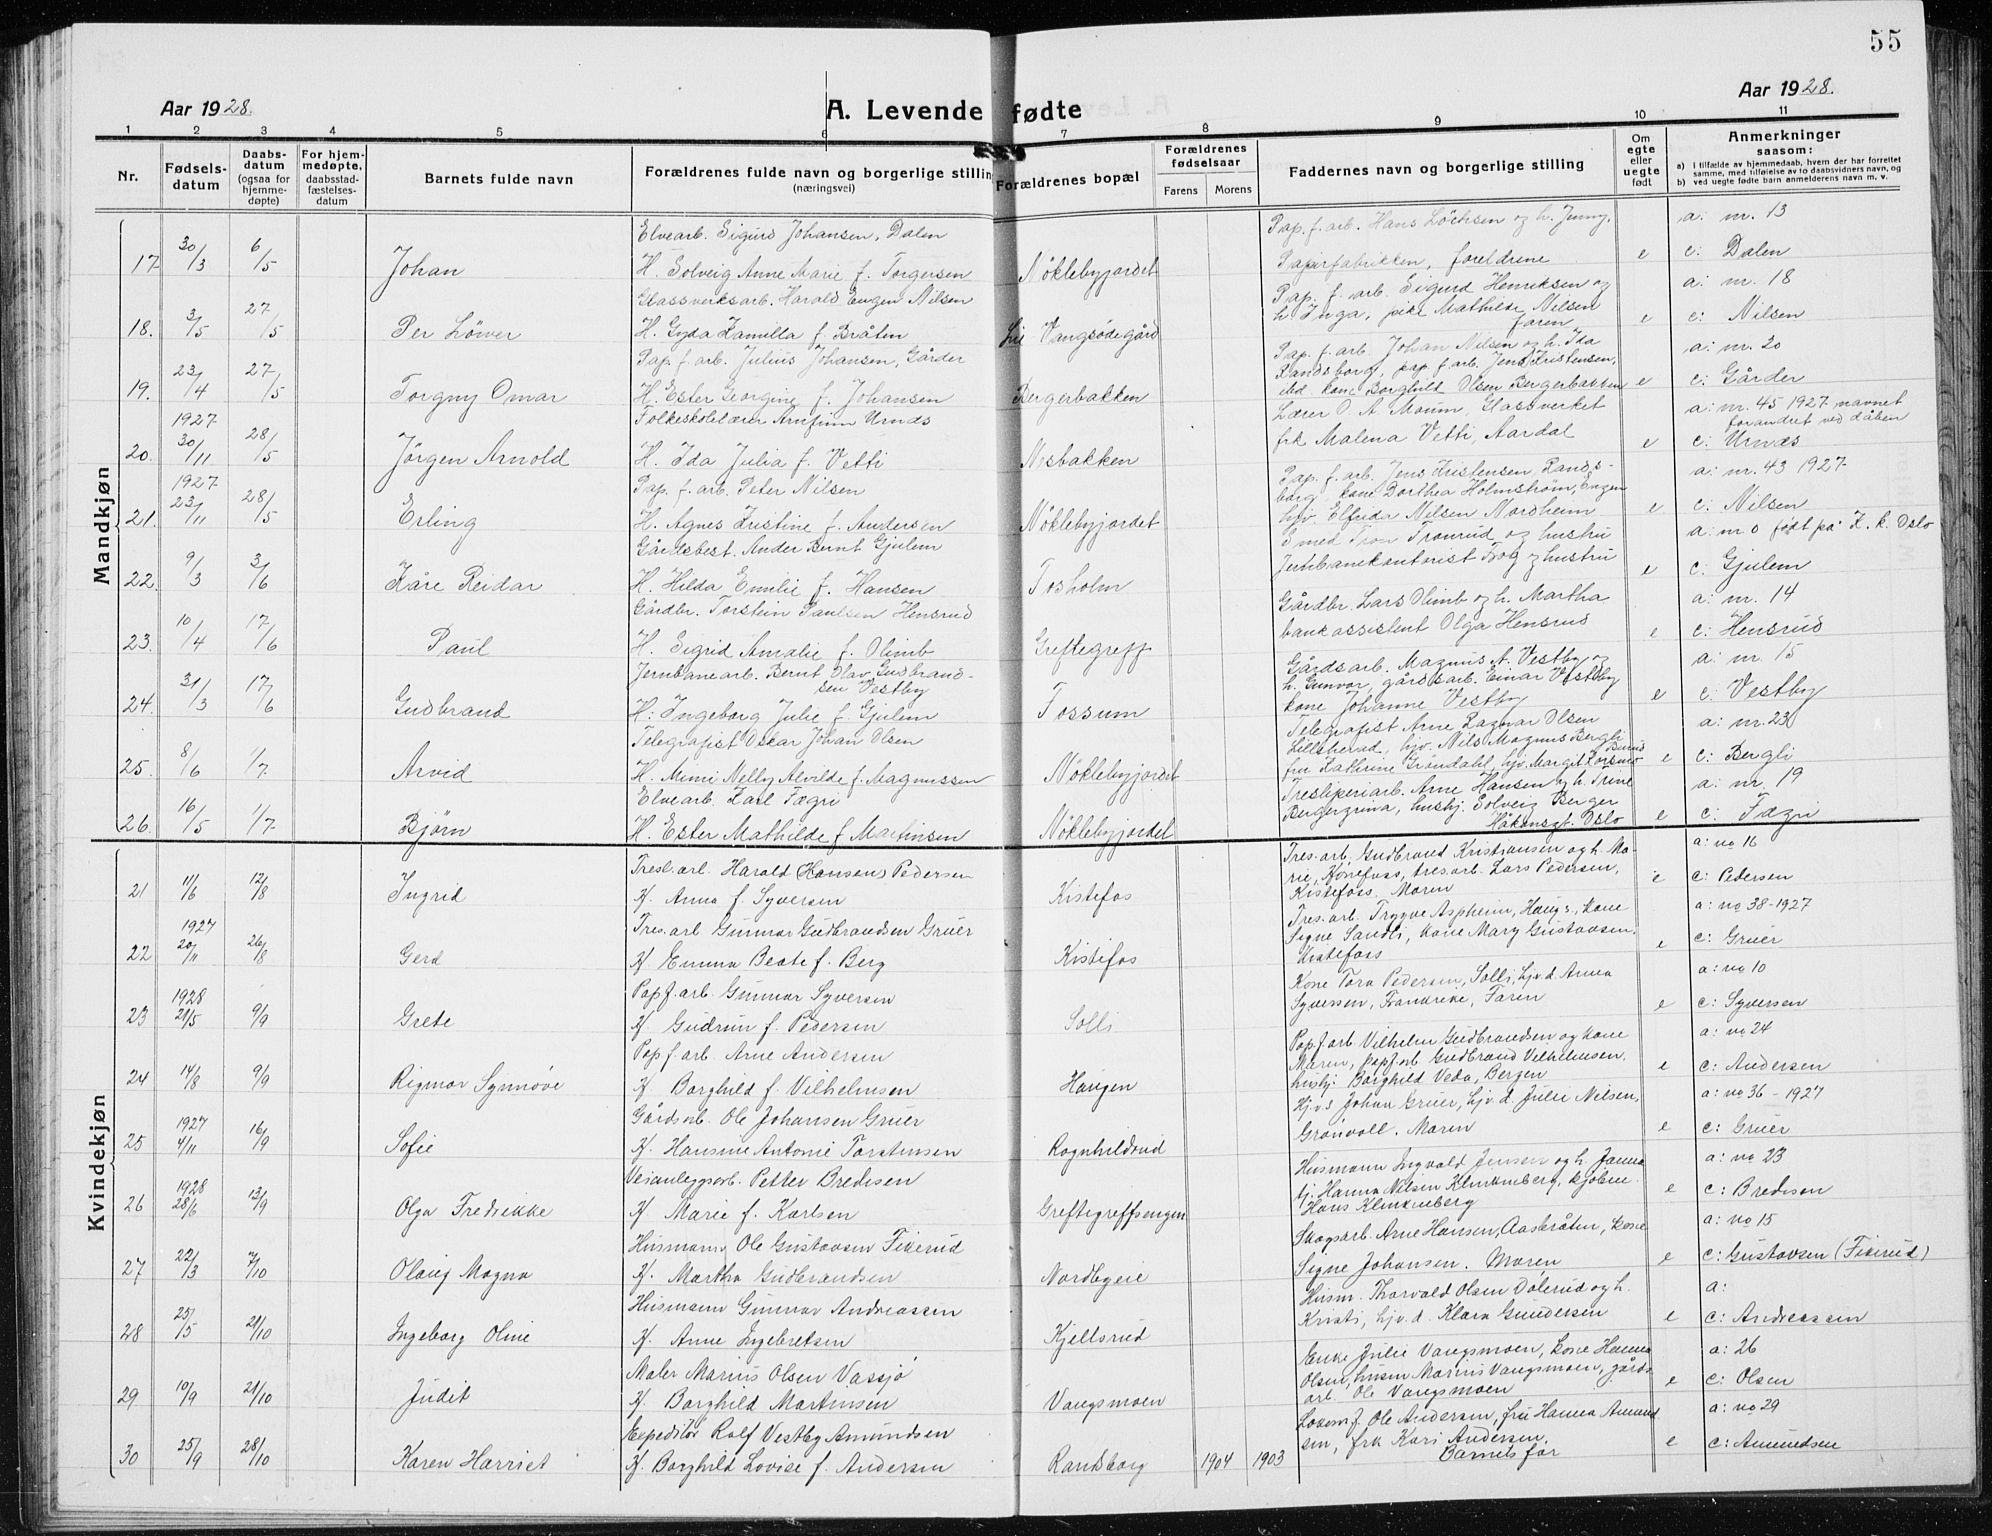 55
Aar 1928.
A. Levende fødte
Aar 1928.
1 2 3 4 5 6 7 8 9 10 11
Nr.
Fødsels-
datum
Daabs-
datum
(ogsaa for
hjemme-
døpte)
For hjem-
medøpte,
daabsstad-
fæstelses-
datum
Barnets fulde navn
Forældrenes fulde navn og borgerlige stilling
(næringsvei)
Forældrenes bopæl
Forældrenes
fødselsaar
Farens Morens
Faddernes navn og borgerlige stilling
Om
egte
eller
uegte
født
Anmerkninger
saasom:
a) I tilfælde av hjemmedaab, hvem der har forrettet
samme, med tilføielse av to daabsvidners navn, og
b) ved uegte fødte barn anmelderens navn m. v.
Mandkjøn
Elvearb. Sigurd Johansen, Dalen
Pap. f. arb. Hans Löchsen og h. Jenny,
a: nr. 13
17. 30/3 6/5 Johan H. Solveig Anne Marie f. Torgersen Nöklebyjordet Papirfabrikken, foreldrene e c: Dalen
Glassverksarb. Harald Engen Nilsen
Pap. f. arb. Sigurd Henriksen og
a: nr. 18
18. 3/5 27/5 Per Löwer H. Gyda Kamilla f. Bråten Lie Vangsödegård h. Inga, pike Mathilde Nilsen
faren e c: Nilsen
Pap. f. arb. Julius Johansen, Gårder
Pap. f. arb. Johan Nilsen og h. Ida
a: nr. 20
Randsborg, pap. f. arb. Jens Kristensen,
19. 23/4 27/5 Torgny Omar H. Ester Georgine f. Johansen Bergerbakken ibd. kone Borghild Olsen Bergerbakken e c: Gårder
1927 Folkeskolelærer Arnfinn Urnæs
Lærer O. A. Moum, Glassverket
a: nr. 45 1927 navnet
forandret ved dåben
20. 30/11 28/5 Jörgen Arnold H. Ida Julia f. Vetti Nesbakken frk Malena Vetti, Aardal e c: Urnæs
1927 Pap. f. arb. Peter Nilsen
Pap. f. arb. Jens Kristensen, Rands-
a: nr. 43 1927
borg, kone Dorthea Holmström, Engen
21. 23/11 28/5 Erling H. Agnes Kristine f. Andersen Nöklebyjordet hjv. Elfrida Nilsen Nordheim e c: Nilsen
Gårdsbest. Ander Bernt Gjulem
Smed Tron Tronrud og hustru
a: nr 0 født på K. k. Oslo
22. 9/3 3/6 Kåre Reidar H. Hilda Emilie f. Hansen Tosholm Jernbanekontorist Frog og hustru e c: Gjulem
Gårdbr. Torstein Paulsen Hensrud
Gårdbr. Lars Olimb og h. Martha
a: nr. 14
23. 10/4 17/6 Paul H. Sigrid Amalie f. Olimb Greftegreff bankassistent Olga Hensrud e c: Hensrud
Jernbanearb. Bernt Olav Gudbrand-
sen Vestby
Gårdsarb. Magnus A. Vestby og
a: nr. 15
h. Gunvor, gårdsarb. Einar Vestby
24. 31/3 17/6 Gudbrand H: Ingeborg Julie f. Gjulem Tossum kone Johanne Vestby e c: Vestby
Telegrafist Oskar Johan Olsen
Telegrafist Arne Ragnar Olsen
a: nr. 23
Lillehevad, hjv. Nils Magnus Bergli
25. 8/6 1/7 Arvid H. Mimi Nelly Alvilde f. Magnussen Nöklebyjordet fru Kathrine Gröndahl, hjv. Margit Korsmo e c: Bergli
Elvearb. Karl Fægri
Tresliperiarb. Arne Hansen og h. Trine
a: nr. 19
Bergergrina, hushj. Solveig Berger
26. 16/5 1/7 Björn H. Ester Mathilde f. Martinsen Nöklebyjordet Håkonsgt. Oslo e c: Fægri
Kvindekjøn
Tresl. arb. Harald (Hansen) Pedersen
Tres. arb. Gudbrand Kristiansen og h. Ma-
a: no 16
rie, Hönefoss, tres. arb. Lars Pedersen,
21 11/6 12/8 Ingrid H. Anna f. Syversen Kistefos Kistefoss. Moren e c: Pedersen
1927 Tres. arb Gunnar Gudbrandsen Gruer
Tres. arb. Trygve Aspheim, Haugs, kone
a: no 38-1927
Signe Sandli, kone Mary Gustavsen,
22 20/11 26/8 Gerd H. Emma Beate f. Berg Kistefos Kistefoss e c: Gruer
1928 Pap f. arb. Gunnar Syversen
Kone Tora Pedersen, Solli, hjv. d. Anna
a: no 10
23 21/5 9/9 Grete H. Gudrun f. Pedersen Solli Syversen, Trandreke, Faren e c: Syversen
Pap f. arb. Arne Andersen
Pap. f. arb Vilhelm Gudbrandsen og kone
a: no 24
Maren, pap. f. arb Gudbrand Vilhelmsen,
24 14/8 9/9 Rigmor Synnöve H. Borghild f. Vilhelmsen Haugen hushj. Borghild Veda, Bergen e c: Andersen
1927 Gårdsarb. Ole Johansen Gruer
Hj. v. s Johan Gruer, hj. v. d. Julie Nilsen,
a: no 36 - 1927
25 4/11 16/9 Sofie H. Hansine Antonie Torstensen Ragnhildsrud Grönvoll. Moren e c: Gruer
1928 Veianleggsarb. Petter Bredesen
Husmann Ingvald Jensen og h. Janna
a: no 23
tj. Hanna Nilsen Klinkenberg, kjöbm.
26 28/6 13/9 Olga Fredrikke H. Marie f. Karlsen Greftegreffsengen Hans Klinkenberg e c: Bredesen
Husmann Ole Gustavsen Fikerud
Skogsarb. Arne Hansen, Aasbråten, kone
a: no 15
27 22/3 7/10 Olaug Magna H. Martha Gudbrandsen Nordbyeie Signe Johansen. Moren e c: Gustavsen (Fikerud)
Husmann Gunnar Andreassen
Husm. Thorvald Olsen Dolerud og h.
a:
28 25/5 21/10 Ingeborg Oline H. Anne Ingebretsen Kjellsrud Kristi, hj. v. d. Klara Gundersen e c: Andreassen
Maler Marius Olsen Vassjö
Enke Julie Vangsmoen, kone Hanna
a: 26
Olsen, husm Marius Vangsmoen, gårds
29 10/9 21/10 Judit H. Borghild Martinsen Vangsmoen arb. Ole Vangsmoen e c: Olsen
Expeditör Rolf Vestby Amundsen
Lokomf. Ole Andersen, fru Hanna Amund
a: no 29
sen, frk Kari Andersen.
30 25/9 28/10 Karen Harriet H. Borghild Lovise f. Andersen Randsborg 1904 1903 Barnets far e c: Amundsen